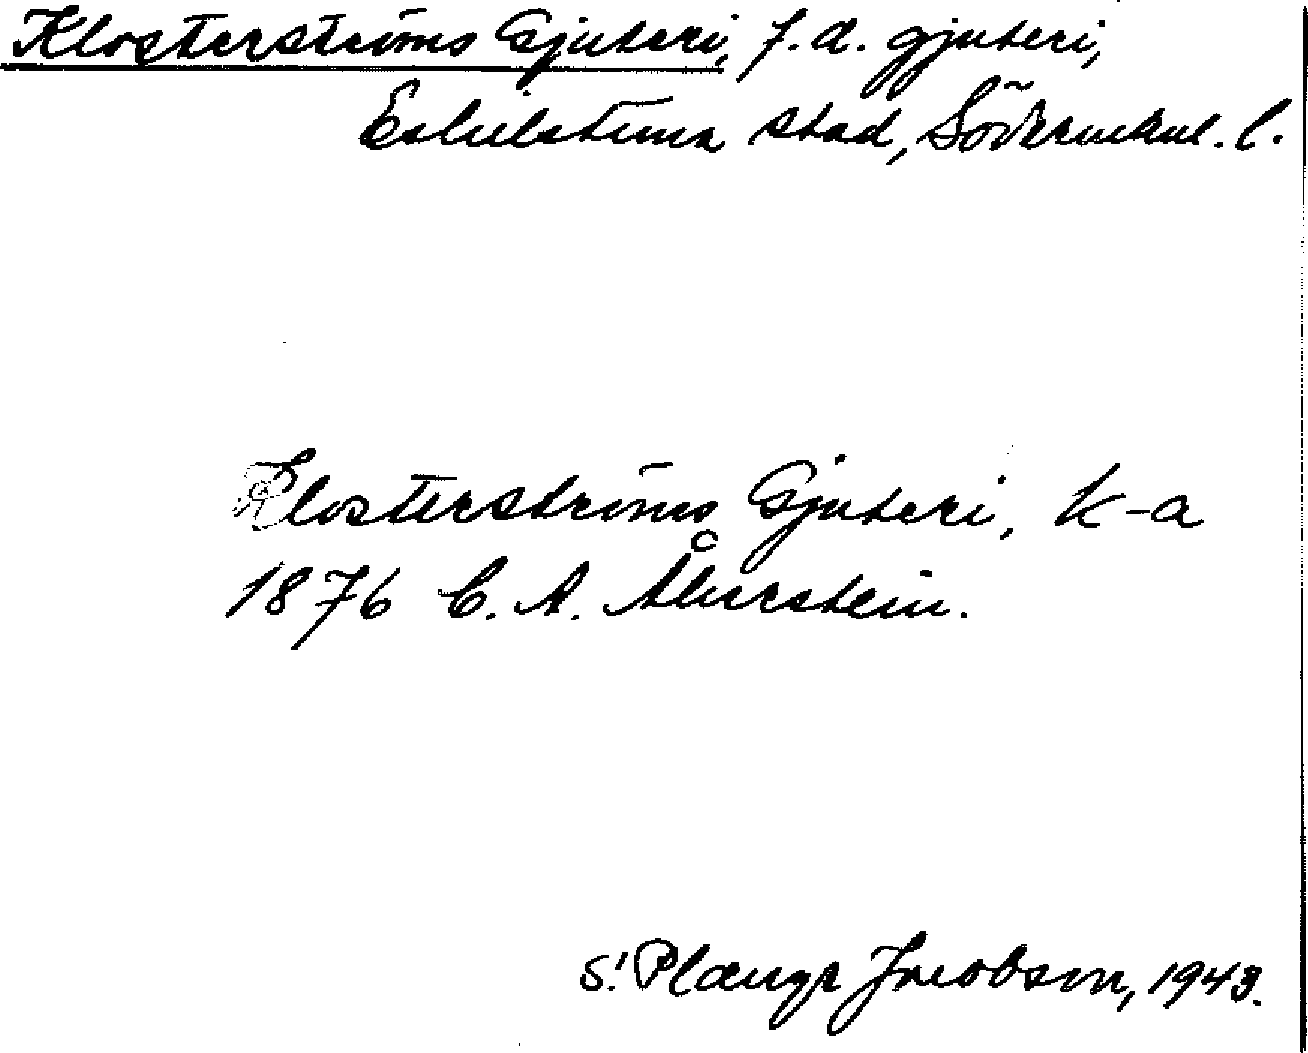 Klosterströms Gjuteri, f.d. gjuteri,
Eskilstuna stad, Södermanl. l.
Klosterströms Gjuteri, k-a
1876 C. A. Åkerstein.
S. Plaugr Jacobson, 1943.